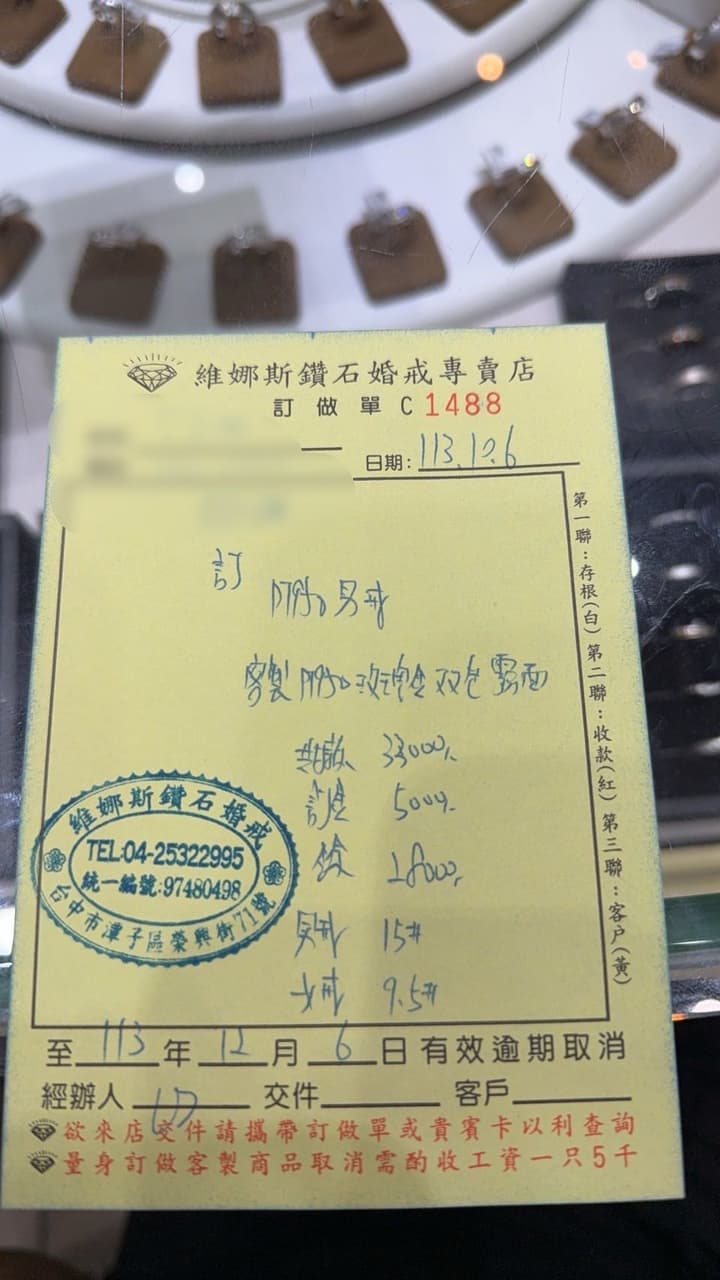 維娜斯鑽石婚戒專賣店
訂做單 C 1488
日期: 113.10.6
訂
PT950 男戒
客製 PT950 玫瑰金 双色 霧面
共 33000/.
訂金 5000/.
餘 28000/.
男戒 15#
女戒 9.5#
維娜斯鑽石婚戒
TEL:04-25322995
統一編號:97480498
台中市潭子區榮興街71號
至 113 年 12 月 6 日有效逾期取消
經辦人 交件 客戶
欲來店交件請攜帶訂做單或貴賓卡以利查詢
量身訂做客製商品取消需酌收工資一只5千
第一聯:存根(白) 第二聯:收款(紅) 第三聯:客戶(黃)